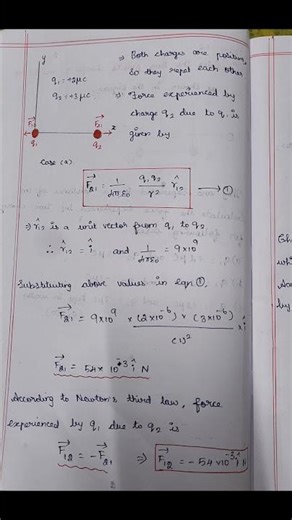 y
q₁ = +2μc
q₂ = +3μc
F⃗₁₂
F⃗₂₁
x
q₁
q₂
⇒ Both charges are positive,
so they repel each other
⇒ Force experienced by
charge q₂ due to q₁ is
given by
Case (a)
F⃗₂₁ = 1/4πε₀ q₁q₂/r² r̂₁₂ → ①
⇒) r̂₁₂ is a unit vector from q₁ to q₂
∴ r̂₁₂ = î and 1/4πε₀ = 9×10⁹
Substituting above values in eqn ①,
F⃗₂₁ = 9×10⁹ × (2×10⁻⁶) × (3×10⁻⁶)/(1)² × î
F⃗₂₁ = 54 × 10⁻³ î N
According to Newton's third law, force
experienced by q₁ due to q₂ is
F⃗₁₂ = −F⃗₂₁ ⇒ F⃗₁₂ = −54×10⁻³ î N